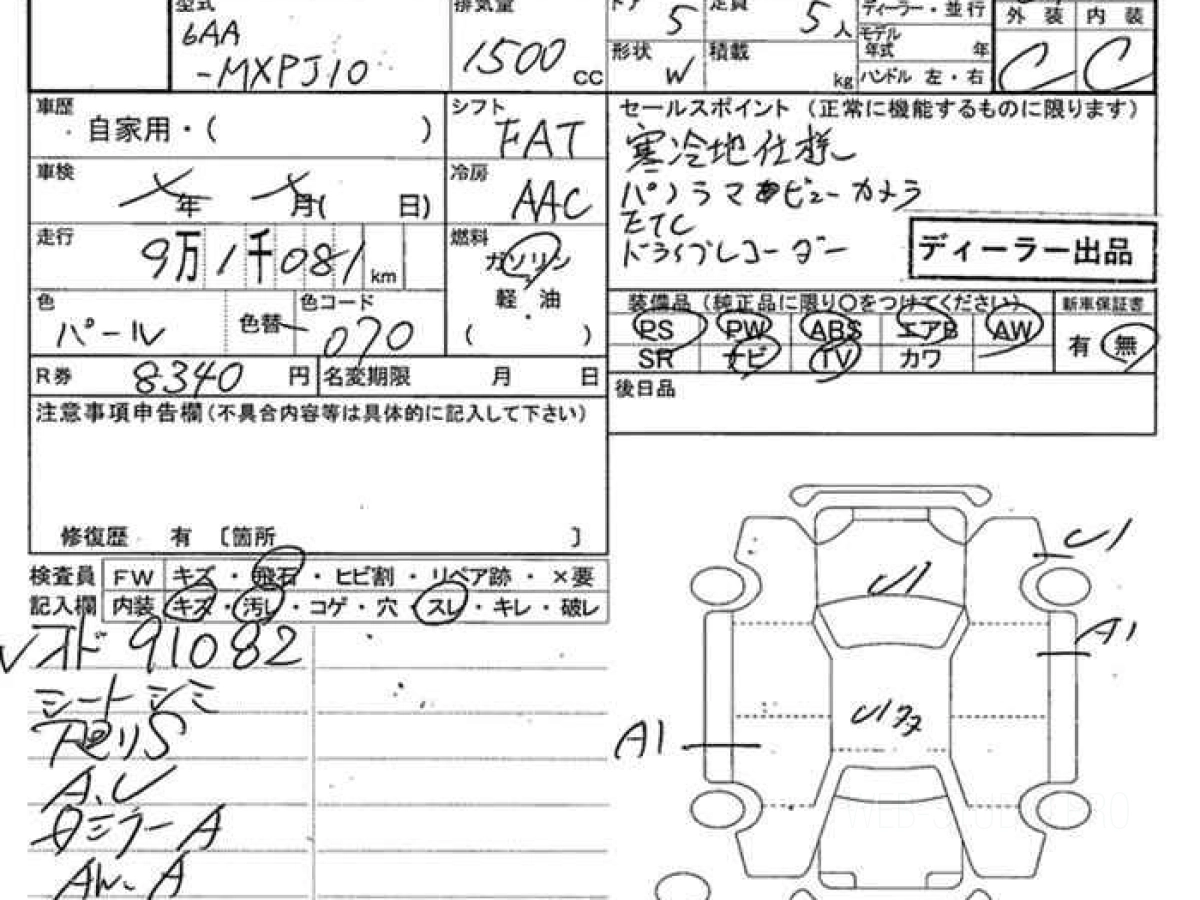 型式
6AA
-MXPJ10
排気量
1500 cc
ドア 5
定員 5人
形状 W
積載 kg
ディーラー・並行
モデル年式 年
ハンドル 左・右
外装 内装
C C
車歴
自家用・( )
シフト
FAT
車検
年 月( 日)
冷房
AAC
走行
9万1千081 km
燃料
ガソリン
軽・油
( )
色
パール
色替
色コード
070
R券 8340 円
名変期限 月 日
注意事項申告欄(不具合内容等は具体的に記入して下さい)
修復歴 有 〔箇所 〕
セールスポイント (正常に機能するものに限ります)
寒冷地仕様
パノラマ ビューカメラ
ETC
ドライブレコーダー
ディーラー出品
装備品 (純正品に限り〇をつけてください)
新車保証書
PS PW ABS エアB AW
SR ナビ TV カワ
有・無
後日品
検査員記入欄
FW キズ・飛石・ヒビ割・リペア跡・×要
内装 キズ・汚レ・コゲ・穴・スレ・キレ・破レ
91082
シートシミ
A.U
ミラーA
AW.A
U1
U1
A1
U1
A1